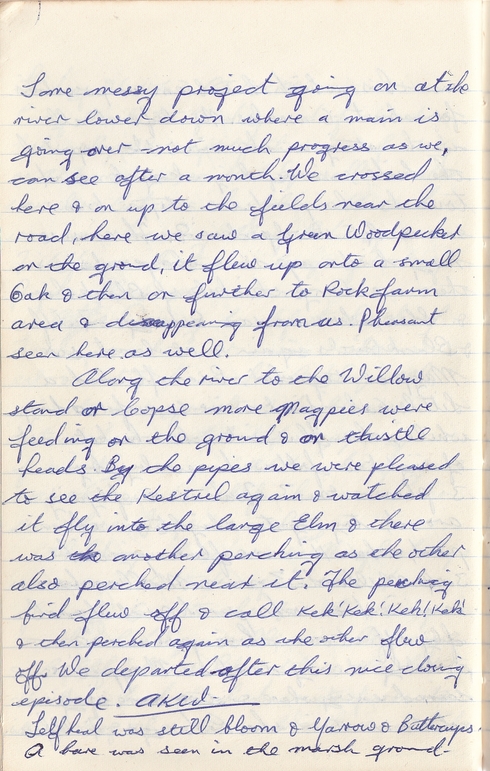 Some messy project going on at the
river lower down where a main is
going over - not much progress as we,
can see after a month. We crossed
here & on up to the fields near the
road, here we saw a Green Woodpecker
on the ground, it flew up onto a small
Oak & then on further to Rock farm
area & disappearing from us. Pheasant
seen here as well.
Along the river to the Willow
stand or Copse more Magpies were
feeding on the ground & on thistle
heads. By the pipes we were pleased
to see the Kestrel again & watched
it fly into the large Elm & there
was another perching as the other
also perched near it. The perching
bird flew off & call Kek! Kek! Kek! Kek!
& then perched again as the other flew
off. We departed after this nice closing
episode.
Selfheal was still bloom & Yarrow & Buttercups.
A hare was seen in the marsh ground.